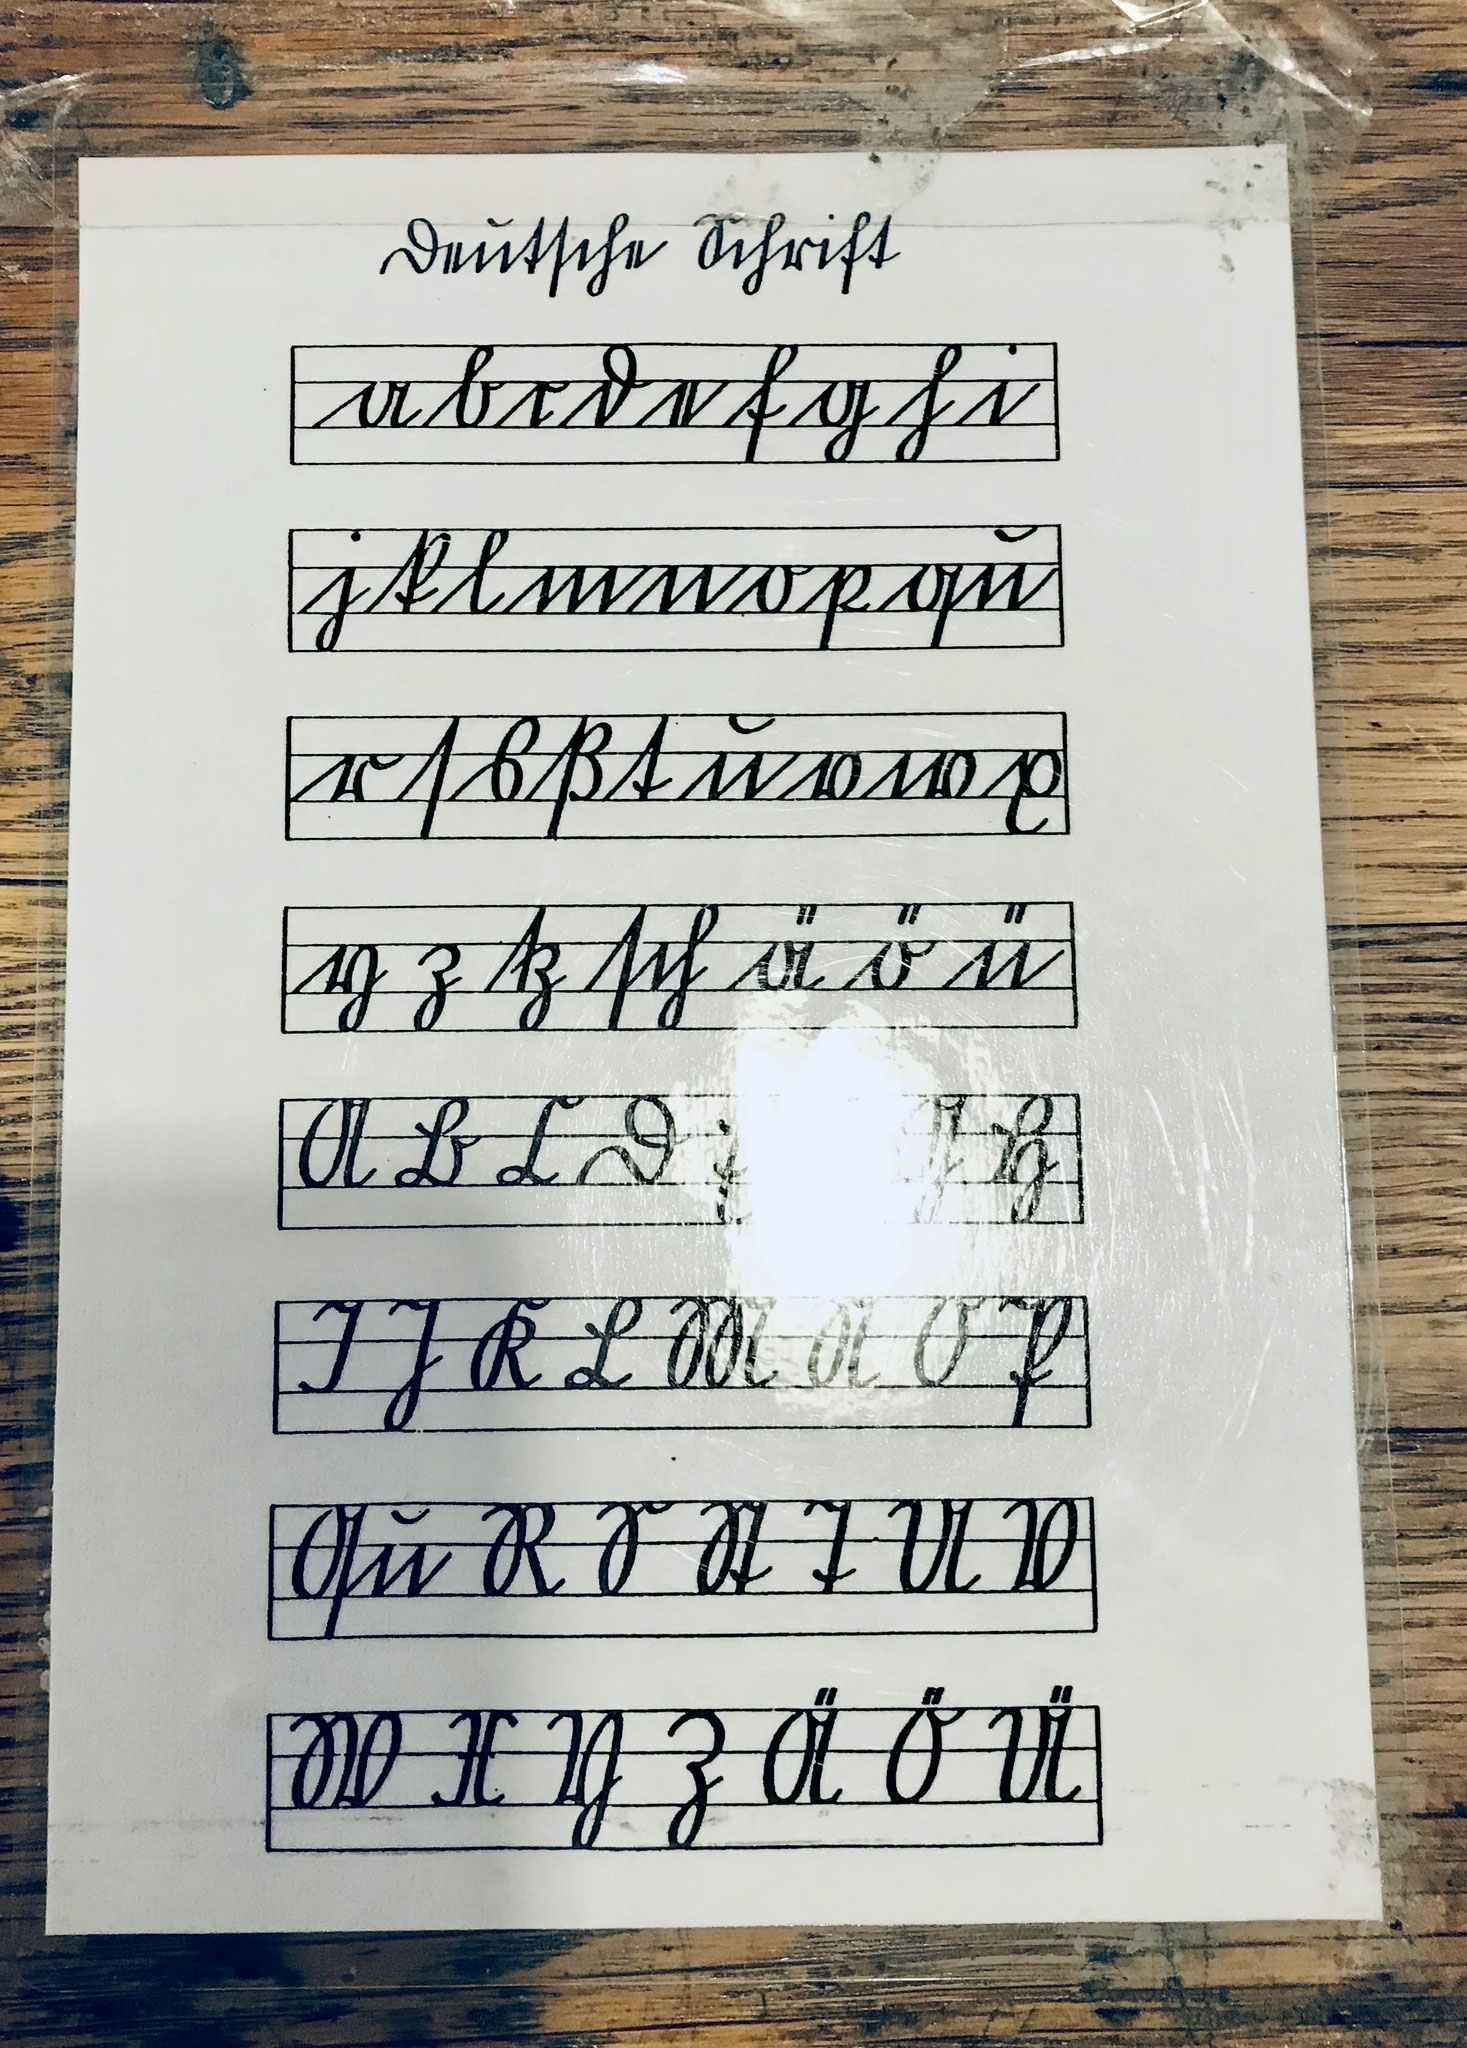 Deutſche Schrift
a b c d e f g h i
j k l m n o p q u
r ſ s ß t u v w x
y z tz ſch ä ö ü
A B C D G H
I J K L M N O P
Qu R S St T U V
W X Y Z Ä Ö Ü